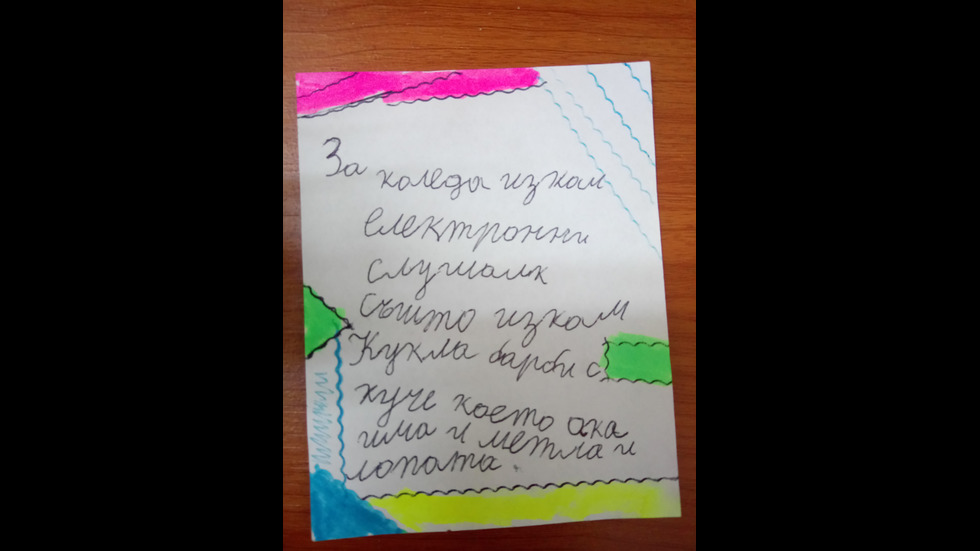 За
коледа изкам
електронни
слушалк
също изкам
Кукла барби с
куче което ака
има и метла и
лопатка.